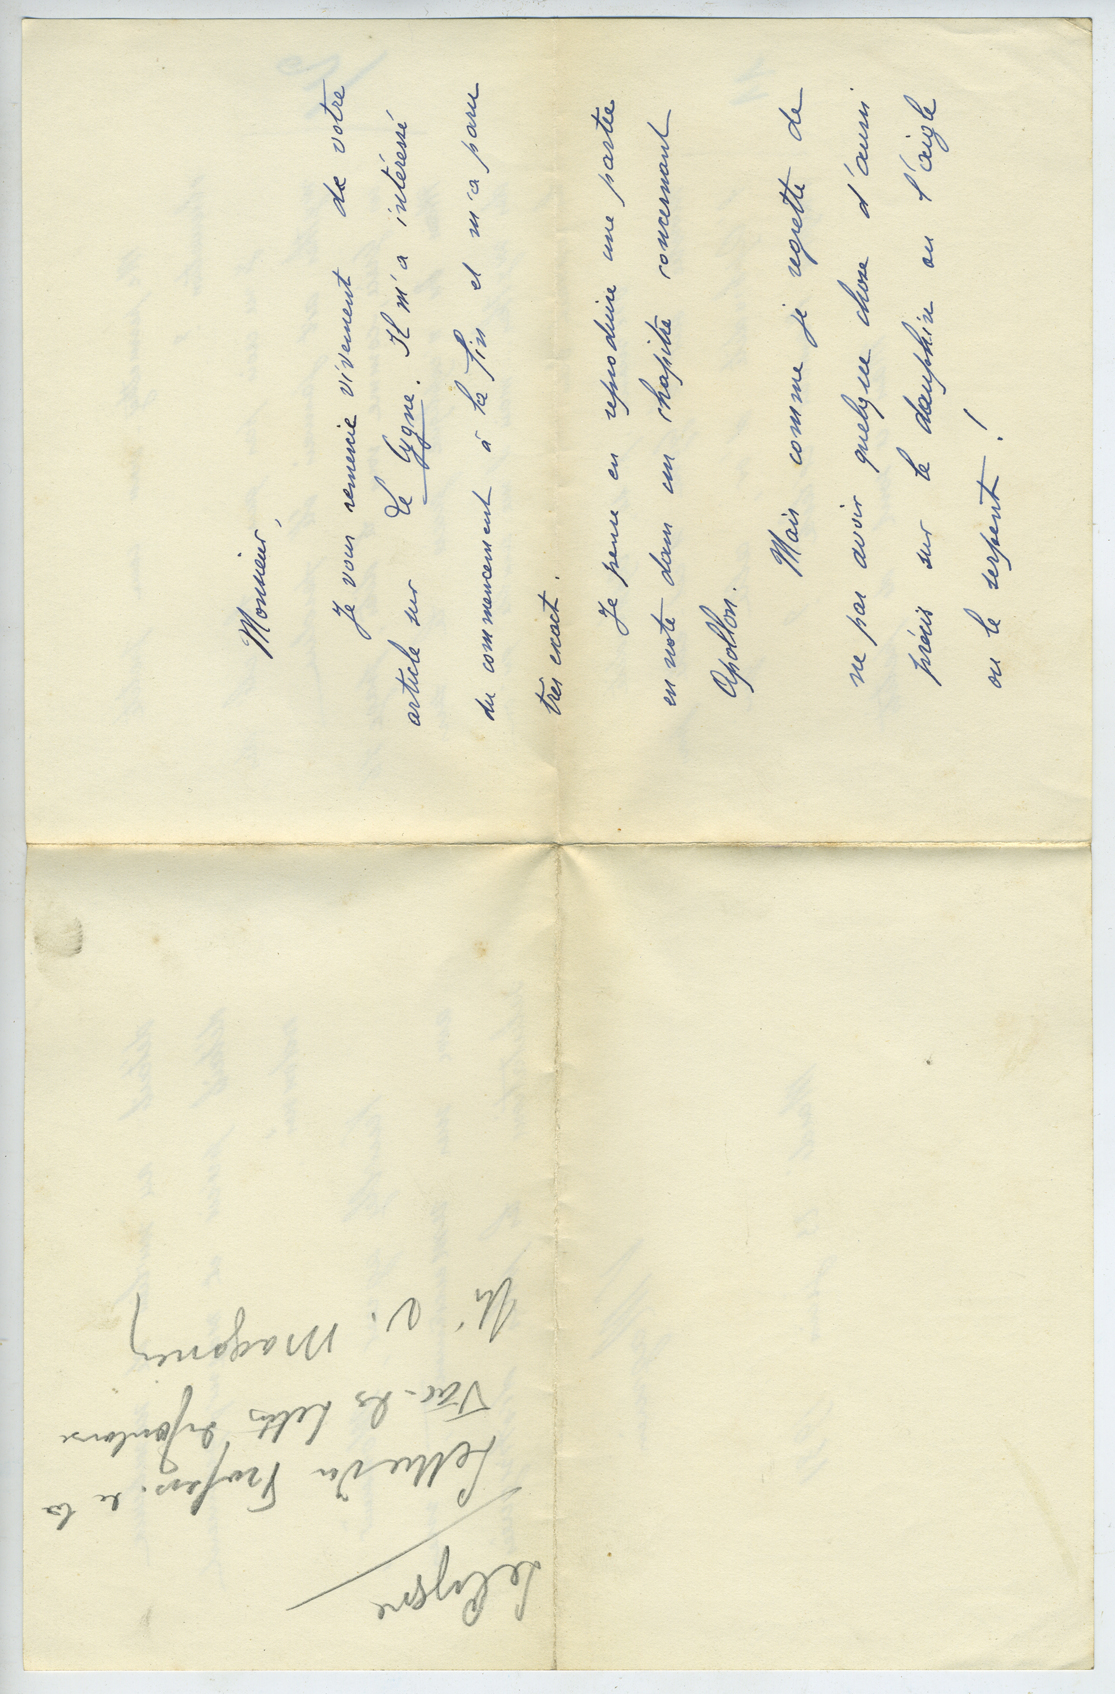 Monsieur,
Je vous remercie vivement de votre
article sur Le Cygne. Il m'a intéressé
du commencement à la fin et m'a paru
très exact.
Je pense en reproduire une partie
en note dans un chapitre concernant
Apollon.
Mais comme je regrette de
ne pas avoir quelque chose d'aussi
précis sur le dauphin ou l'aigle
ou le serpent !
Le Cygne
Lettre du Profess. de la
Fac. des Lettres